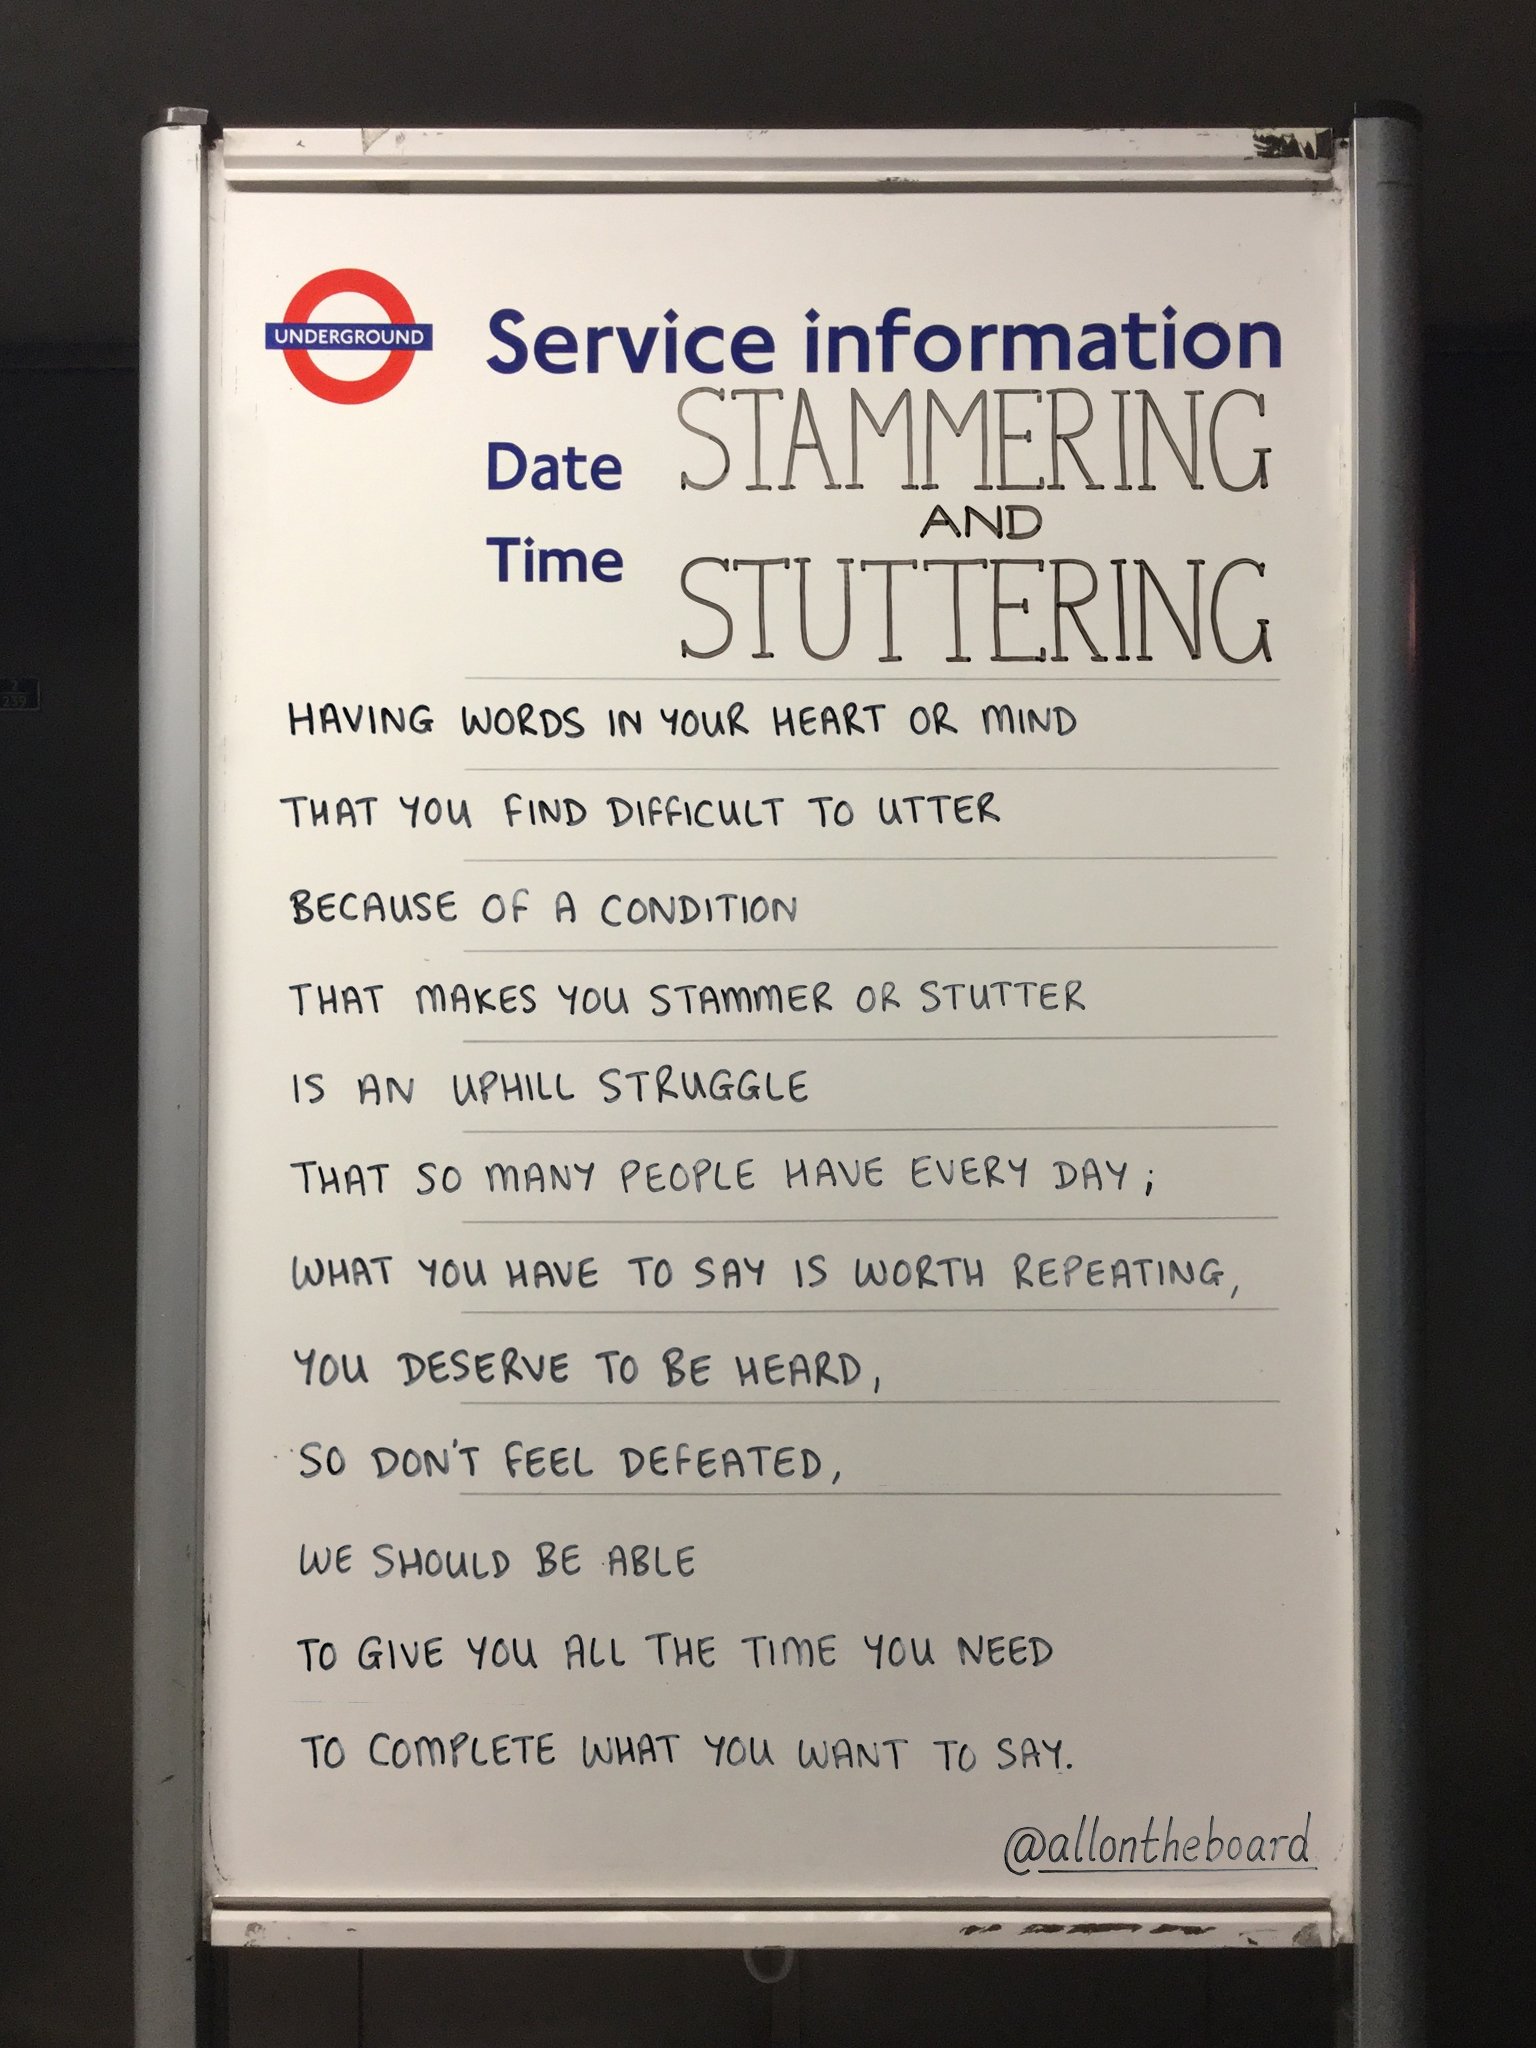 UNDERGROUND
Service information
Date
Time
STAMMERING
AND
STUTTERING
HAVING WORDS IN YOUR HEART OR MIND
THAT YOU FIND DIFFICULT TO UTTER
BECAUSE OF A CONDITION
THAT MAKES YOU STAMMER OR STUTTER
IS AN UPHILL STRUGGLE
THAT SO MANY PEOPLE HAVE EVERY DAY;
WHAT YOU HAVE TO SAY IS WORTH REPEATING,
YOU DESERVE TO BE HEARD,
SO DON'T FEEL DEFEATED,
WE SHOULD BE ABLE
TO GIVE YOU ALL THE TIME YOU NEED
TO COMPLETE WHAT YOU WANT TO SAY.
@allontheboard